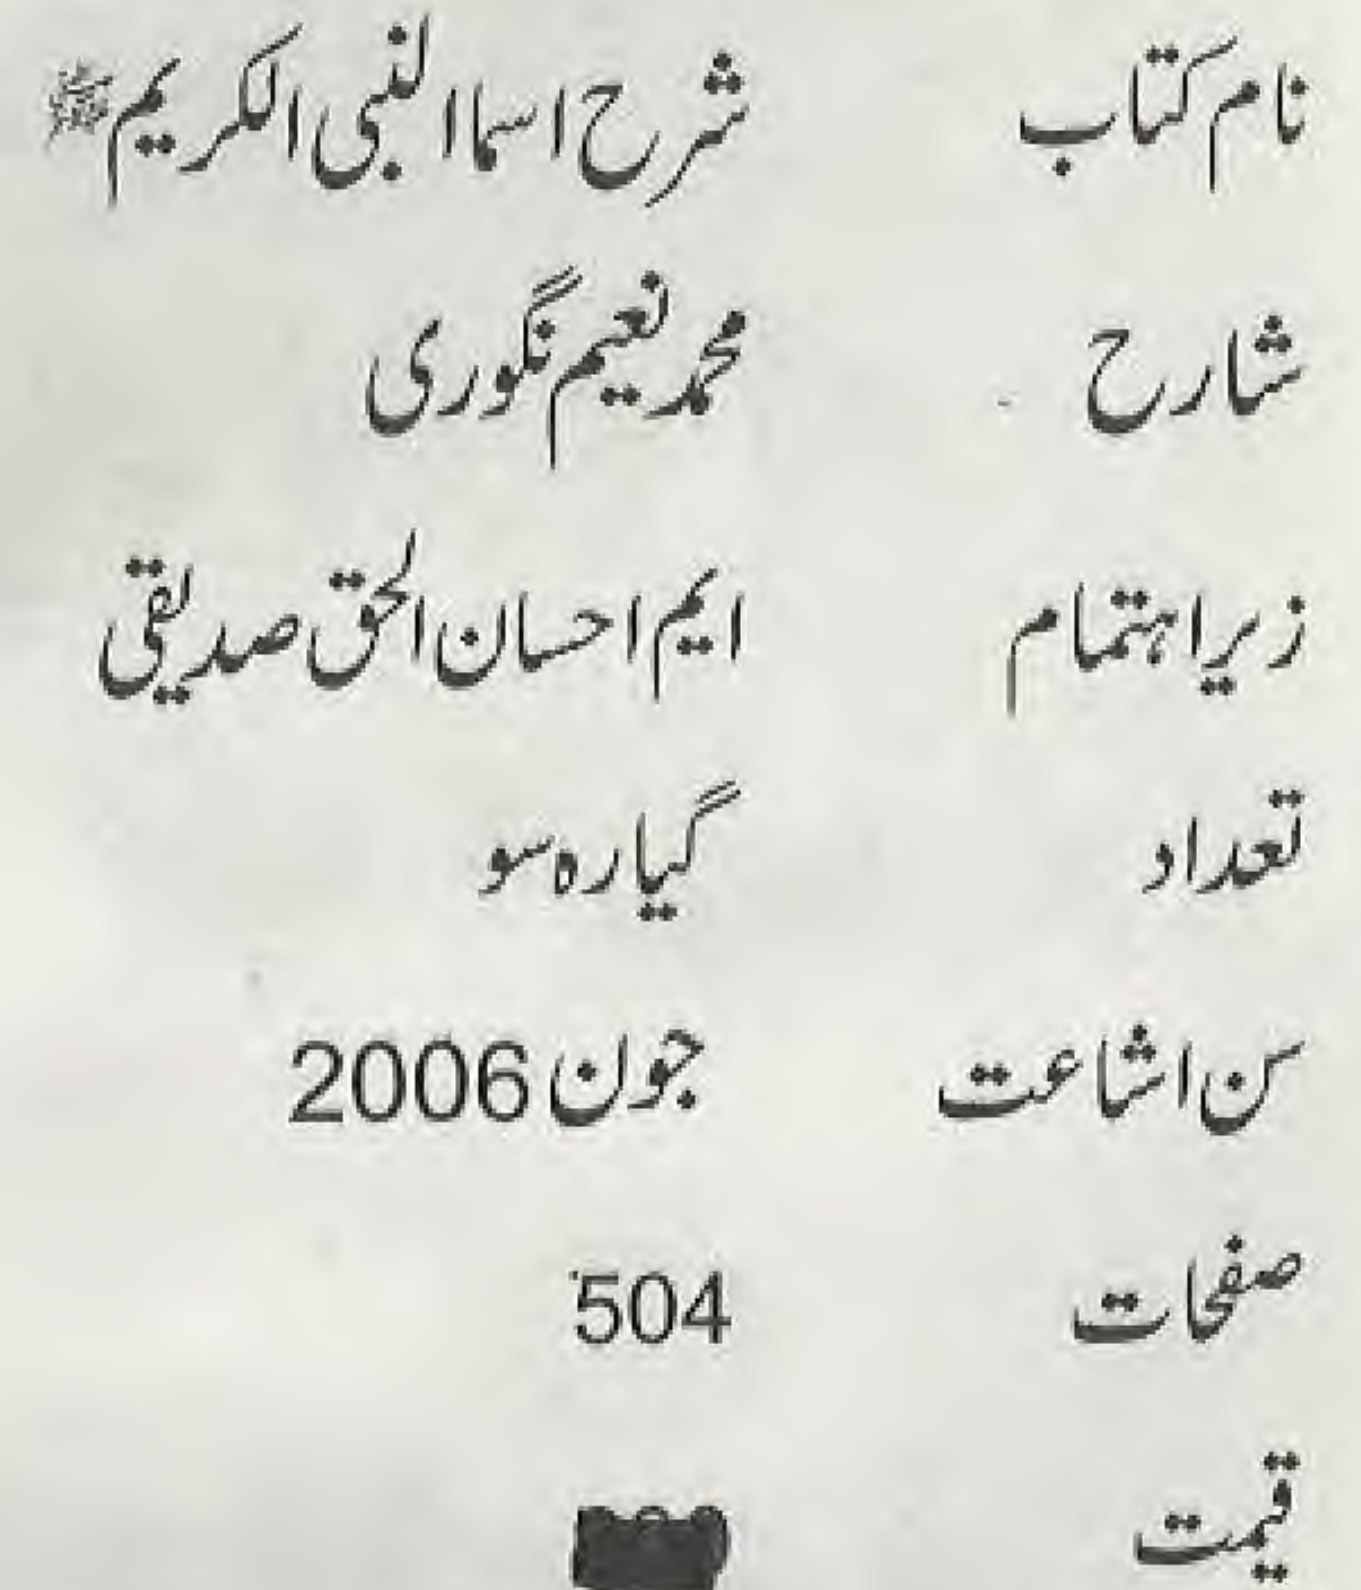 نام کتاب شرح اسما النبی الکریم ﷺ
شارح محمد نعیم نگوری
زیر اہتمام ایم احسان الحق صدیقی
تعداد گیارہ سو
سن اشاعت جون 2006
صفحات 504
قیمت